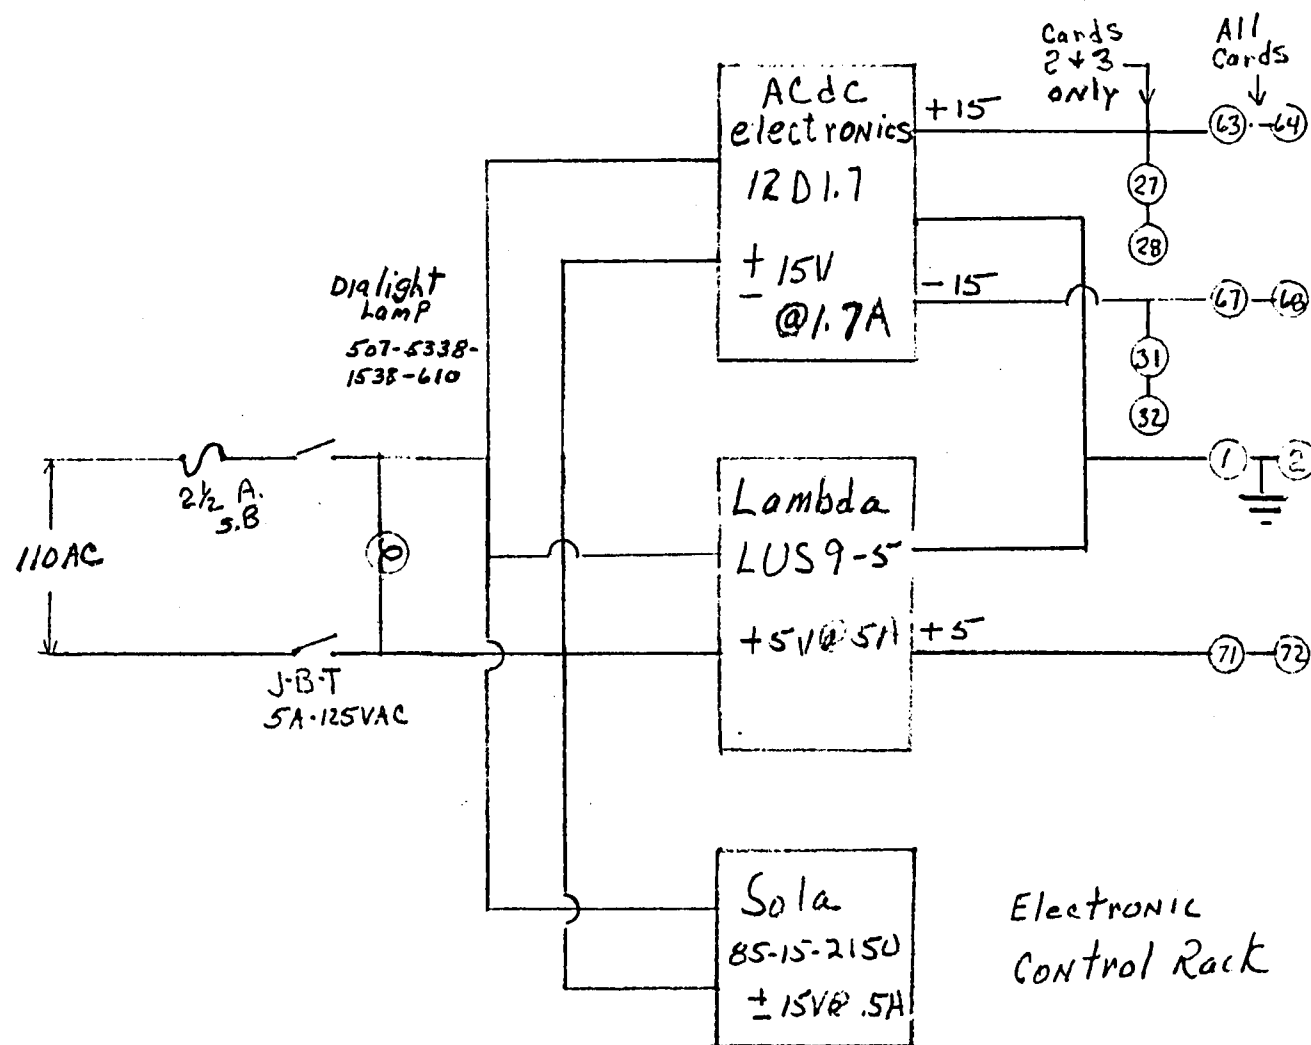 Cards
2 + 3
only
All
Cards
ACdC
electronics
12D1.7
± 15V
@1.7A
+15
-15
63
64
27
28
67
68
31
32
Dialight
Lamp
507-5338-
1538-610
2½ A.
S.B
110AC
J-B-T
5A-125VAC
Lambda
LUS9-5
+5V@5A
+5
1
2
71
72
Sola
85-15-2150
± 15V@.5A
Electronic
Control Rack